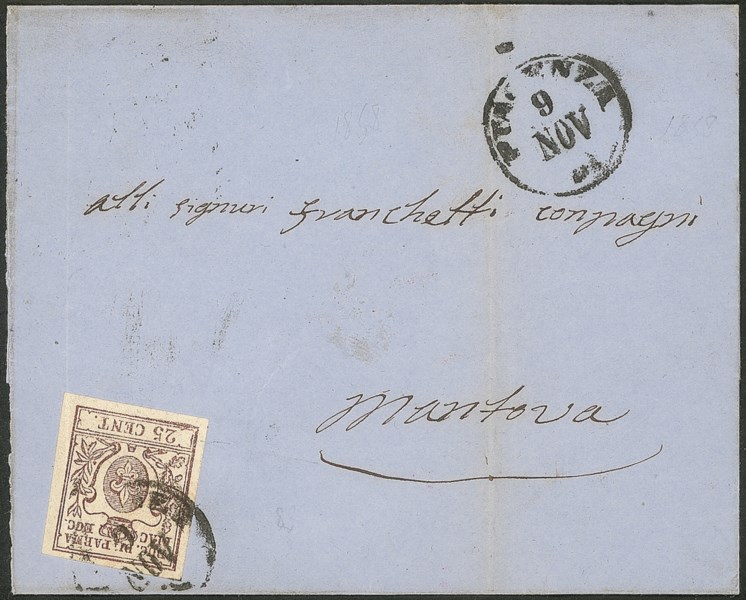 PIACENZA
9
NOV
1868
1868
alli signuri Franchetti compagni
Mantova
25 CENT.
DUC. DI PARMA
PIAC. ECC.
NOV